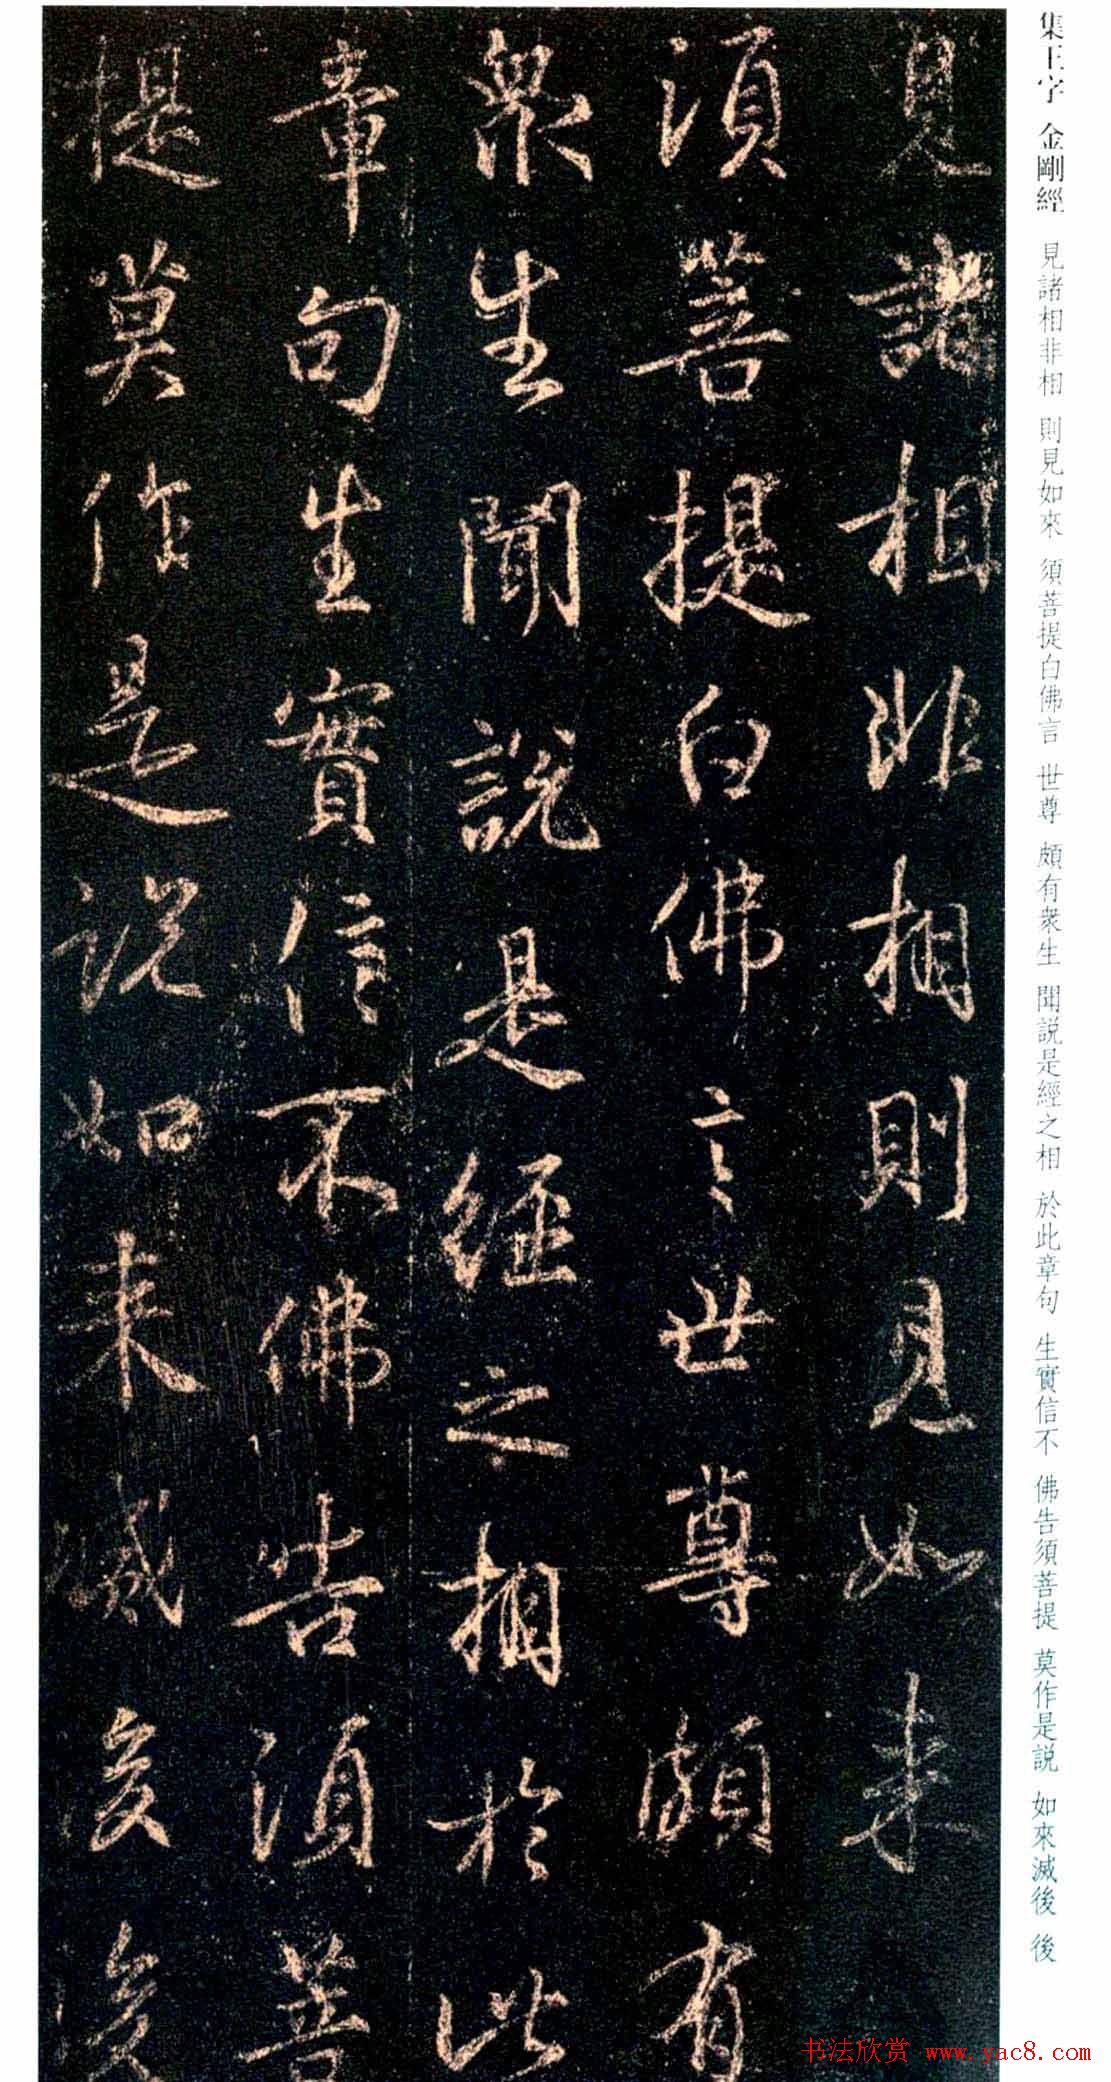 集王字 金剛經 見諸相非相 則見如來 須菩提白佛言 世尊 頗有衆生 聞説是經之相 於此章句 生實信不 佛告須菩提 莫作是説 如來滅後 後
見諸相非相則見如来
須菩提白佛言世尊頗有
衆生聞說是經之相於此
章句生實信不佛告須菩
提莫作是说如来滅後後
书法欣赏 www.yac8.com